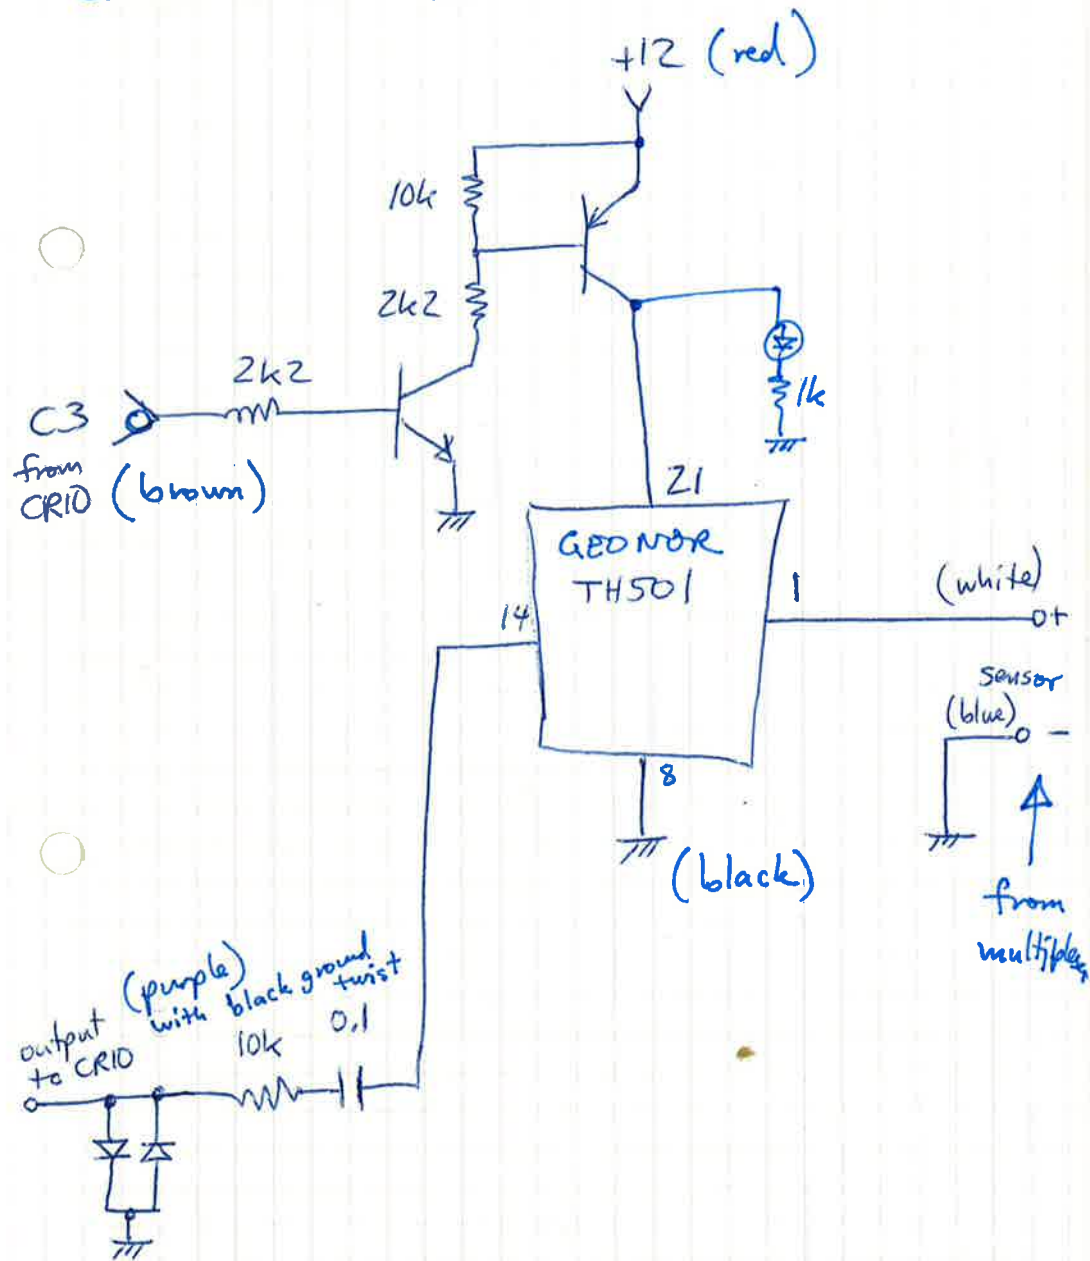 +12 (red)
10k
2k2
2k2
C3
from
CR10 (brown)
1k
21
GEONOR
TH501
14
1
(white)
+
sensor
(blue)
-
8
(black)
from
multiplexer
(purple)
with black ground
twist
output
to CR10
10k
0.1